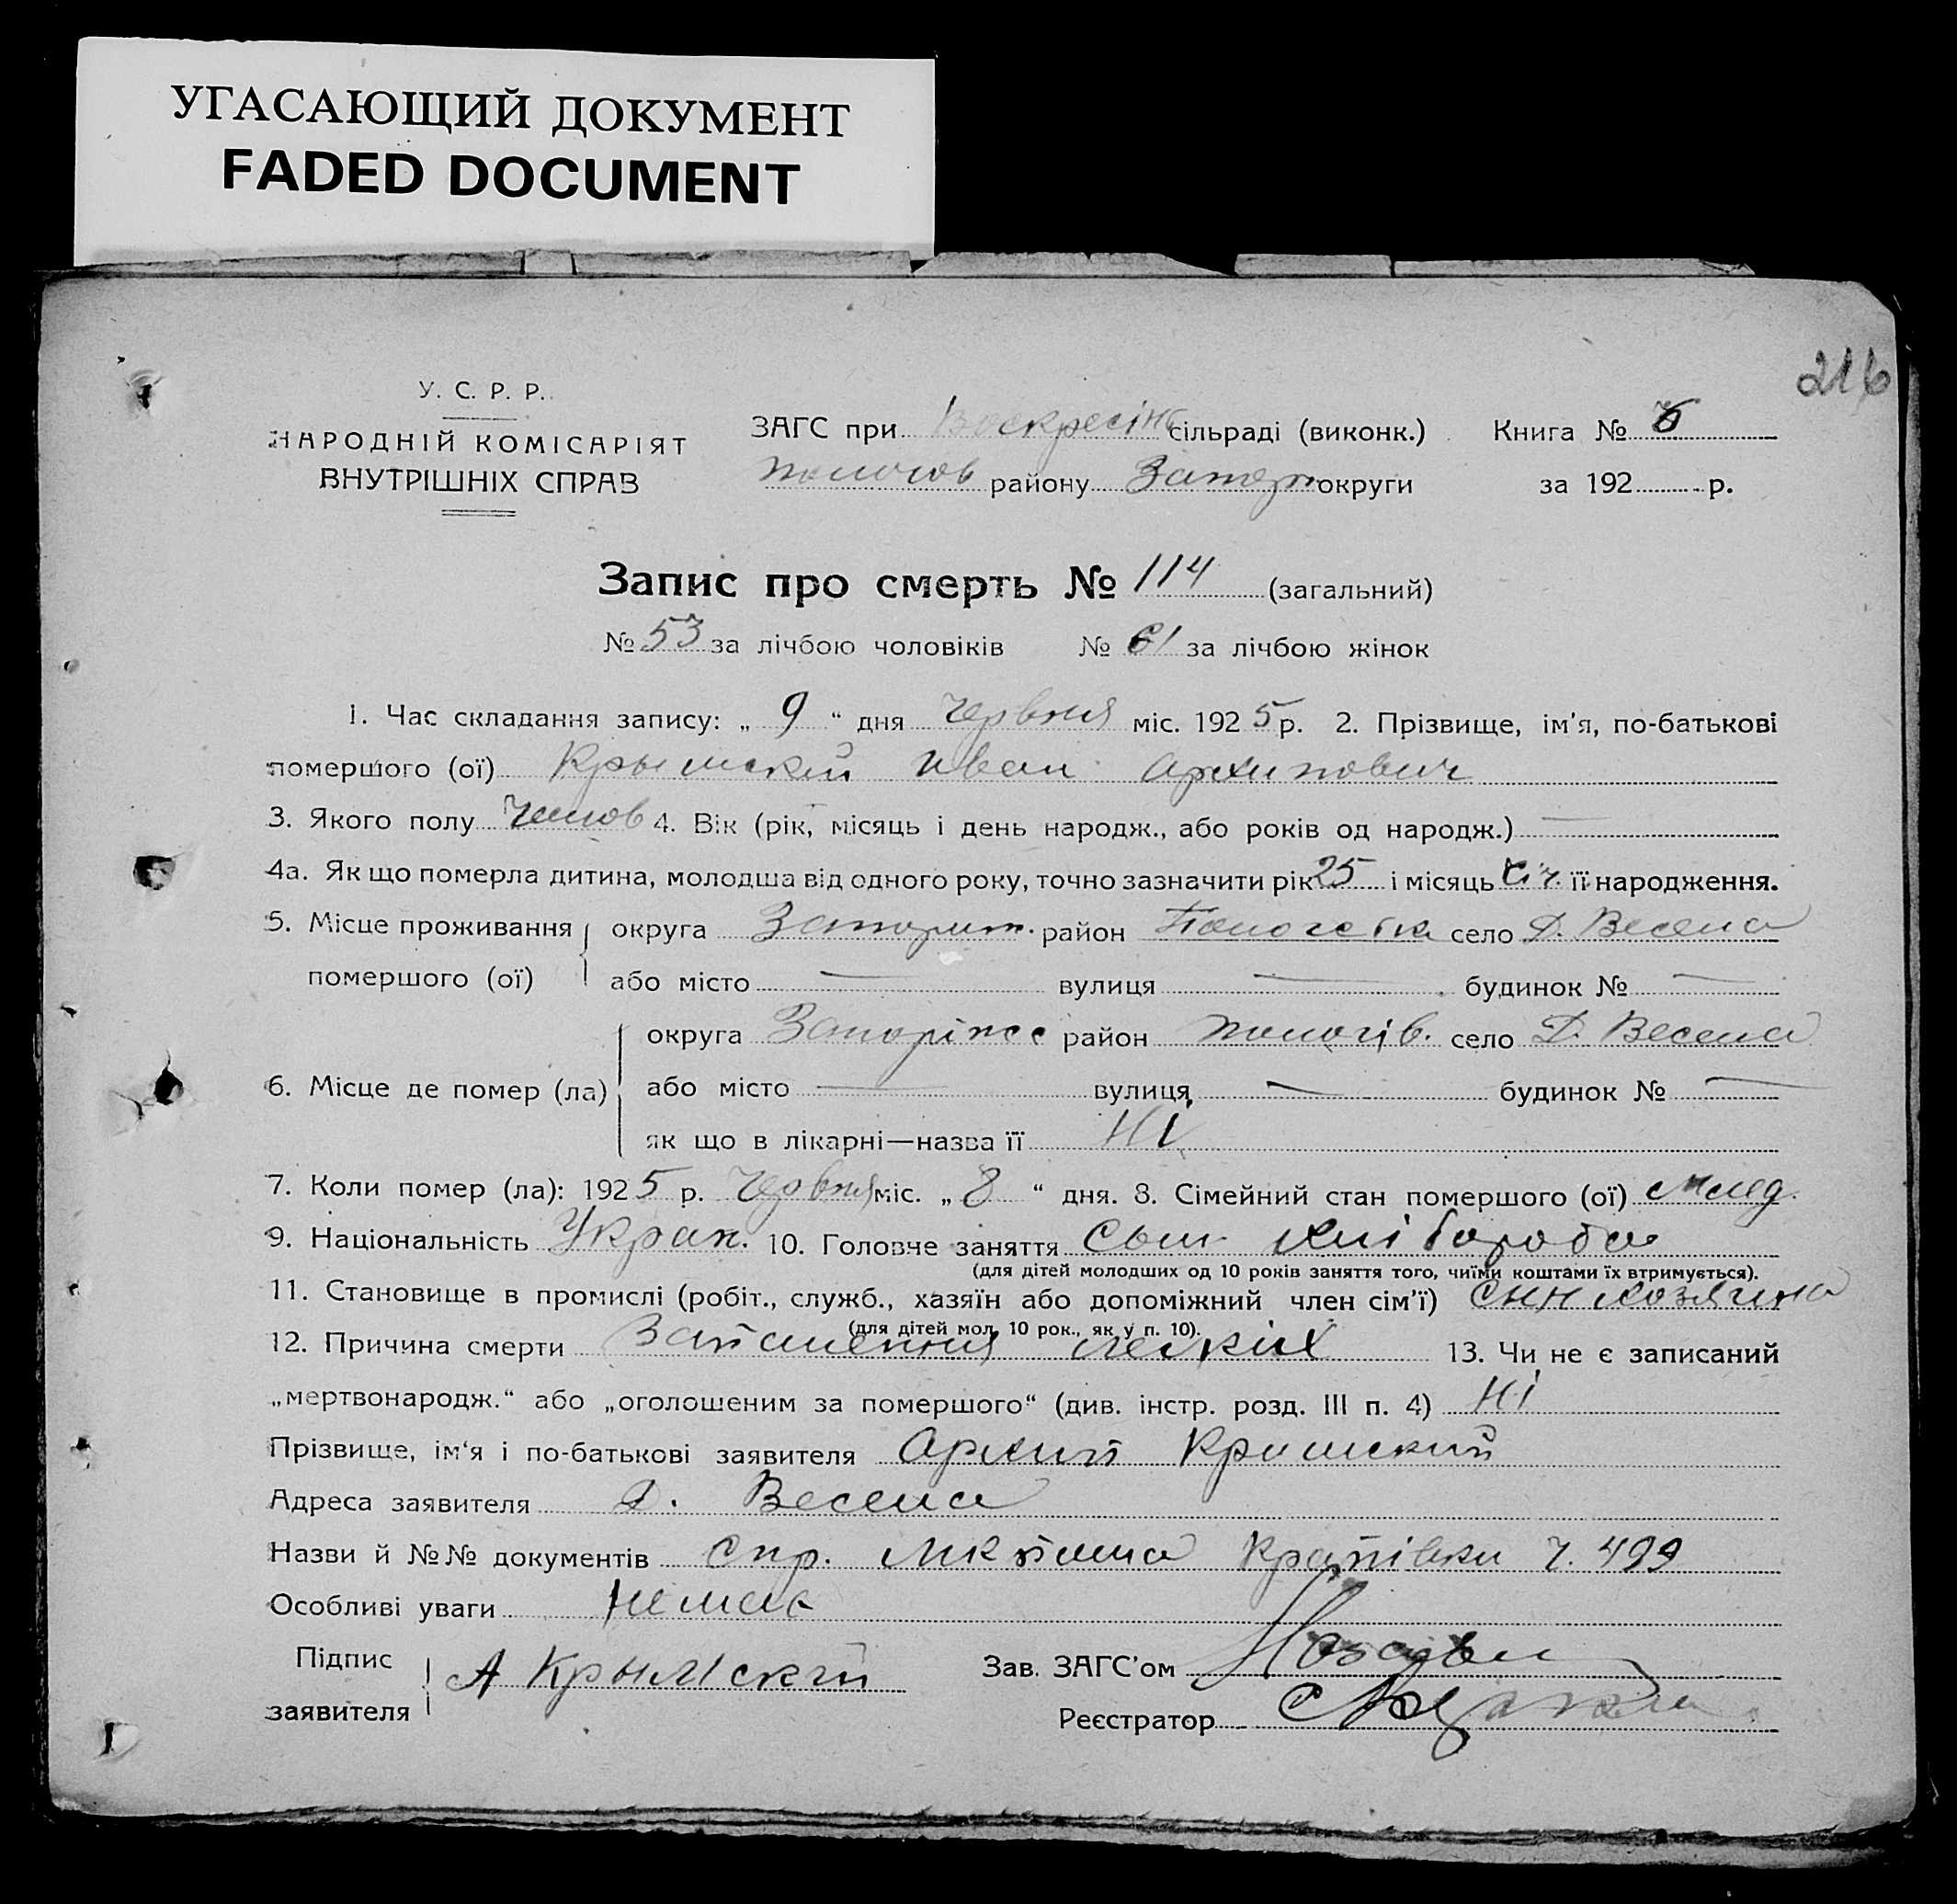 УГАСАЮЩИЙ ДОКУМЕНТ
FADED DOCUMENT
216
У. С. Р. Р.
НАРОДНІЙ КОМІСАРІЯТ
ВНУТРІШНІХ СПРАВ
ЗАГС при Воскресінс сільраді (виконк.) Книга № 6
Пологов району Запоріж округи за 192 р.
Запис про смерть № 114 (загальний)
№ 53 за лічбою чоловіків № 61 за лічбою жінок
1. Час складання запису: „ 9 “ дня Червня міс. 1925 р. 2. Прізвище, ім'я, по-батькові
помершого (ої) Крымский Иван Архипович
3. Якого полу Чолов 4. Вік (рік, місяць і день народж., або років од народж.) —
4а. Як що померла дитина, молодша від одного року, точно зазначити рік 25 і місяць Січ. її народження.
5. Місце проживання помершого (ої) округа Запоріж. район Пологовск село Д. Весела
або місто — вулиця — будинок № —
6. Місце де помер (ла) округа Запоріжс район Пологів. село Д. Весела
або місто — вулиця — будинок № —
як що в лікарні—назва її Ні
7. Коли помер (ла): 1925 р. Червня міс. „ 8 “ дня. 8. Сімейний стан помершого (ої) млад.
9. Національність Укран. 10. Головне заняття Сын хлібороба
(для дітей молодших од 10 років заняття того, чиїми коштами їх втримується).
11. Становище в промислі (робіт., служб., хазяїн або допоміжний член сім'ї) Син хозяина
(для дітей мол. 10 рок., як у п. 10).
12. Причина смерти Запалення легких 13. Чи не є записаний
„мертвонародж.“ або „оголошеним за померлого“ (див. інстр. розд. III п. 4) Ні
Прізвище, ім'я і по-батькові заявителя Архип Кримский
Адреса заявителя Д. Весела
Назви й №№ документів Спр. Ч. 499
Особливі уваги Немає
Підпис заявителя А Крымский Зав. ЗАГС'ом
Реєстратор